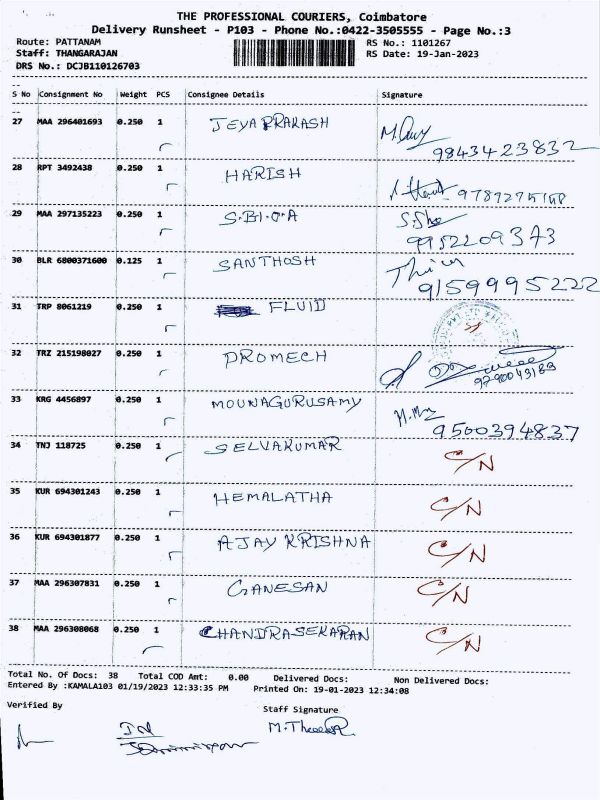 THE PROFESSIONAL COURIERS, Coimbatore
Delivery Runsheet - P103 - Phone No.:0422-3505555 - Page No.:3
Route: PATTANAM RS No.: 1101267
Staff: THANGARAJAN RS Date: 19-Jan-2023
DRS No.: DCJB110126703
S No Consignment No Weight PCS Consignee Details Signature
27 MAA 296401693 0.250 1 JEYAPRAKASH
9843423832
28 RPT 3492438 0.250 1 HARISH
29 MAA 297135223 0.250 1 S.B.I.O.A
9952209373
30 BLR 6800371600 0.125 1 SANTHOSH
9159995222
31 TRP 8061219 0.250 1 FLUID
32 TRZ 215198027 0.250 1 PROMECH
9790043189
33 KRG 4456897 0.250 1 MOUNAGURUSAMY
9500394837
34 TNJ 118725 0.250 1 SELVAKUMAR C/N
35 KUR 694301243 0.250 1 HEMALATHA C/N
36 KUR 694301877 0.250 1 AJAY KRISHNA C/N
37 MAA 296307831 0.250 1 GANESAN C/N
38 MAA 296308068 0.250 1 CHANDRASEKARAN C/N
Total No. Of Docs: 38 Total COD Amt: 0.00 Delivered Docs: Non Delivered Docs:
Entered By :KAMALA103 01/19/2023 12:33:35 PM Printed On: 19-01-2023 12:34:08
Verified By Staff Signature